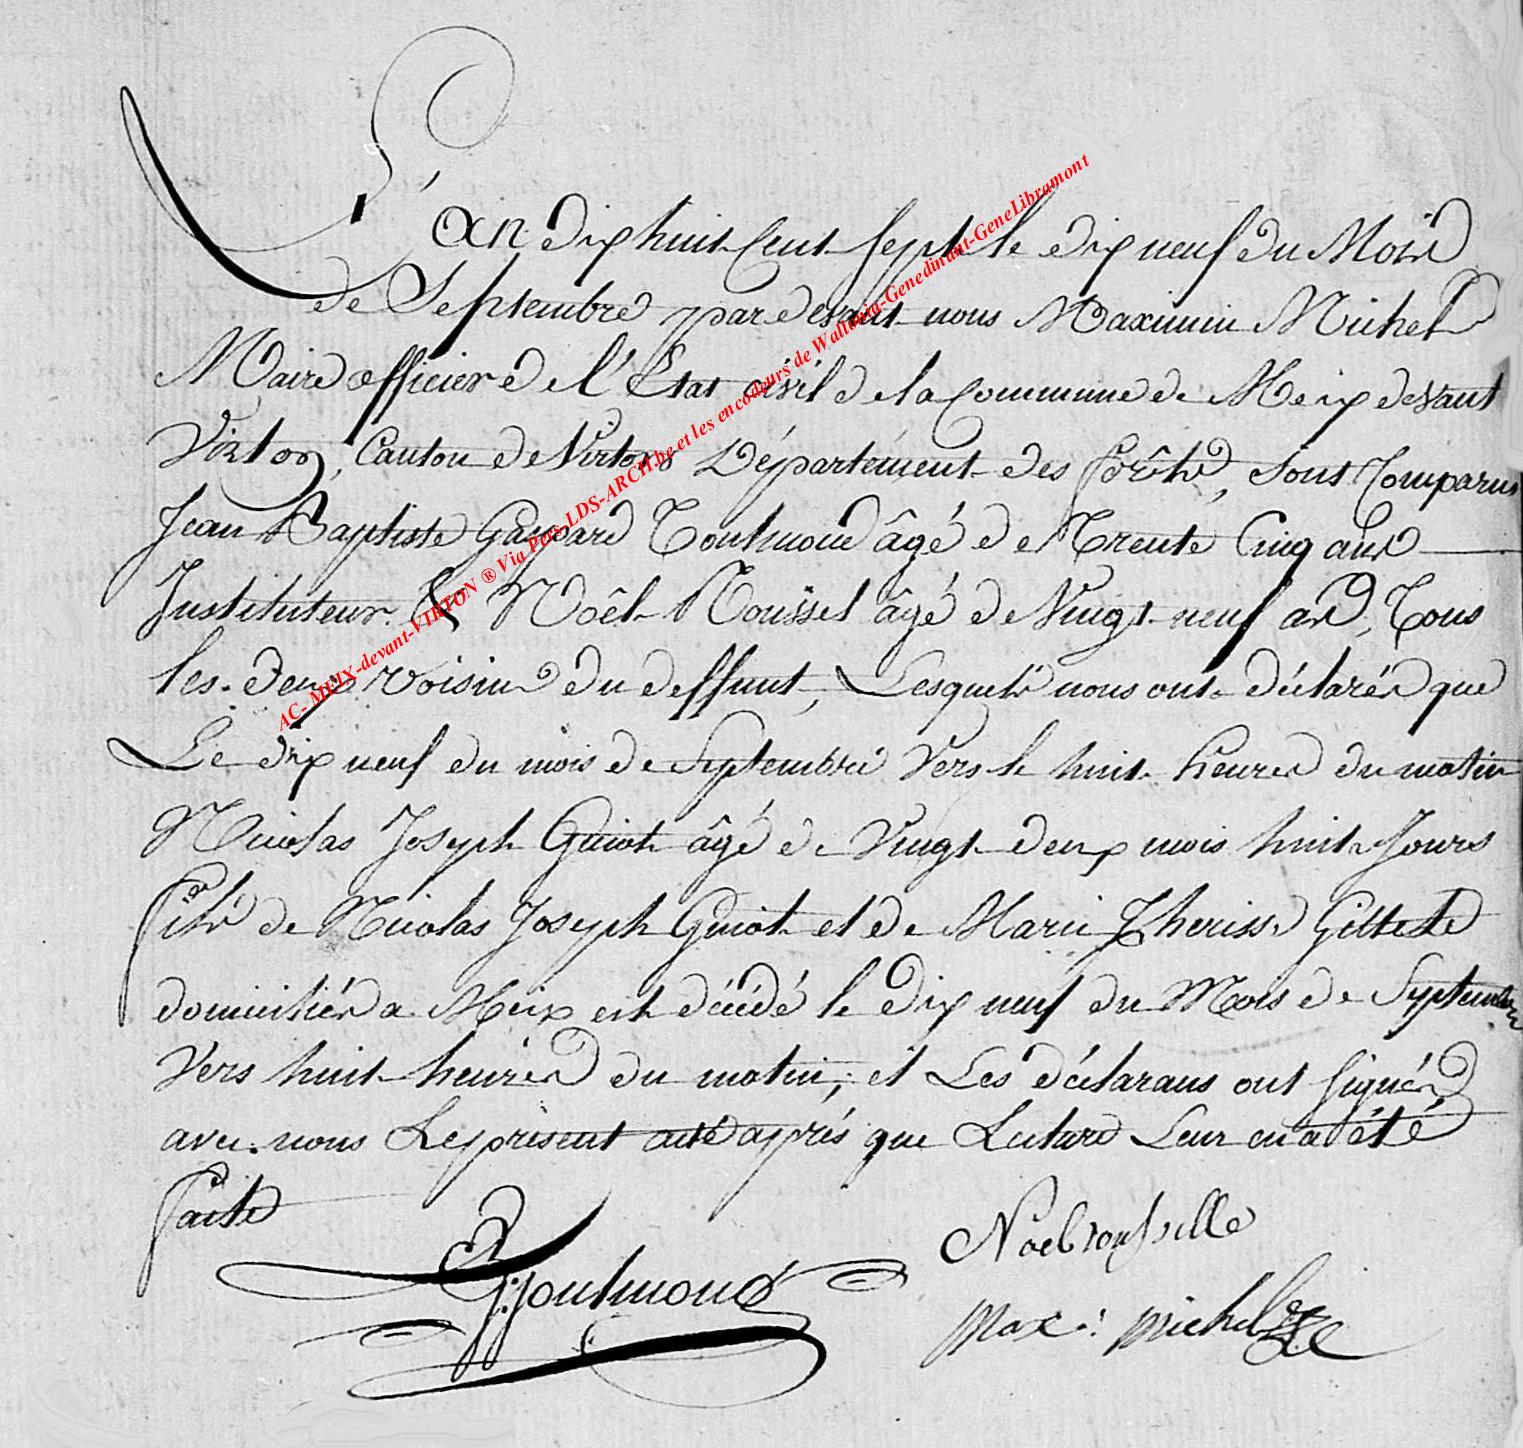 L'an dix huit Cent sept le dix neuf du Mois
de Septembre par devant nous Maximin Michel
Maire officier de l'État civil de la Commune de Meix devant
Virton, Canton de Virton Département des forêts, sont Comparus
Jean Baptiste Gaspard Toulmond âgé de Trente Cinq ans
Instituteur & Noël Rousset âgé de Vingt neuf ans, Tous
les deux voisins du deffunt, Lesquels nous ont déclarés que
Le dix neuf du mois de Septembre Vers le huit heures du matin
Nicolas Joseph Guiot âgé de Vingt deux mois huit Jours
fils de Nicolas Joseph Guiot et de Marie Therisse
domiciliés a Meix est décédé le dix neuf du Mois de Septembre
Vers huit heures du matin, et Les déclarans ont signés
avec nous Le présent acte après que Lecture Leur en a été
faite
Toulmond
Noel rousselle
Max: Michel
AC- MEIX-devant-VIRTON ® Via Pers-LDS-ARCH.be et les encodeurs de Wallonia-Genedinant-GeneLibramont